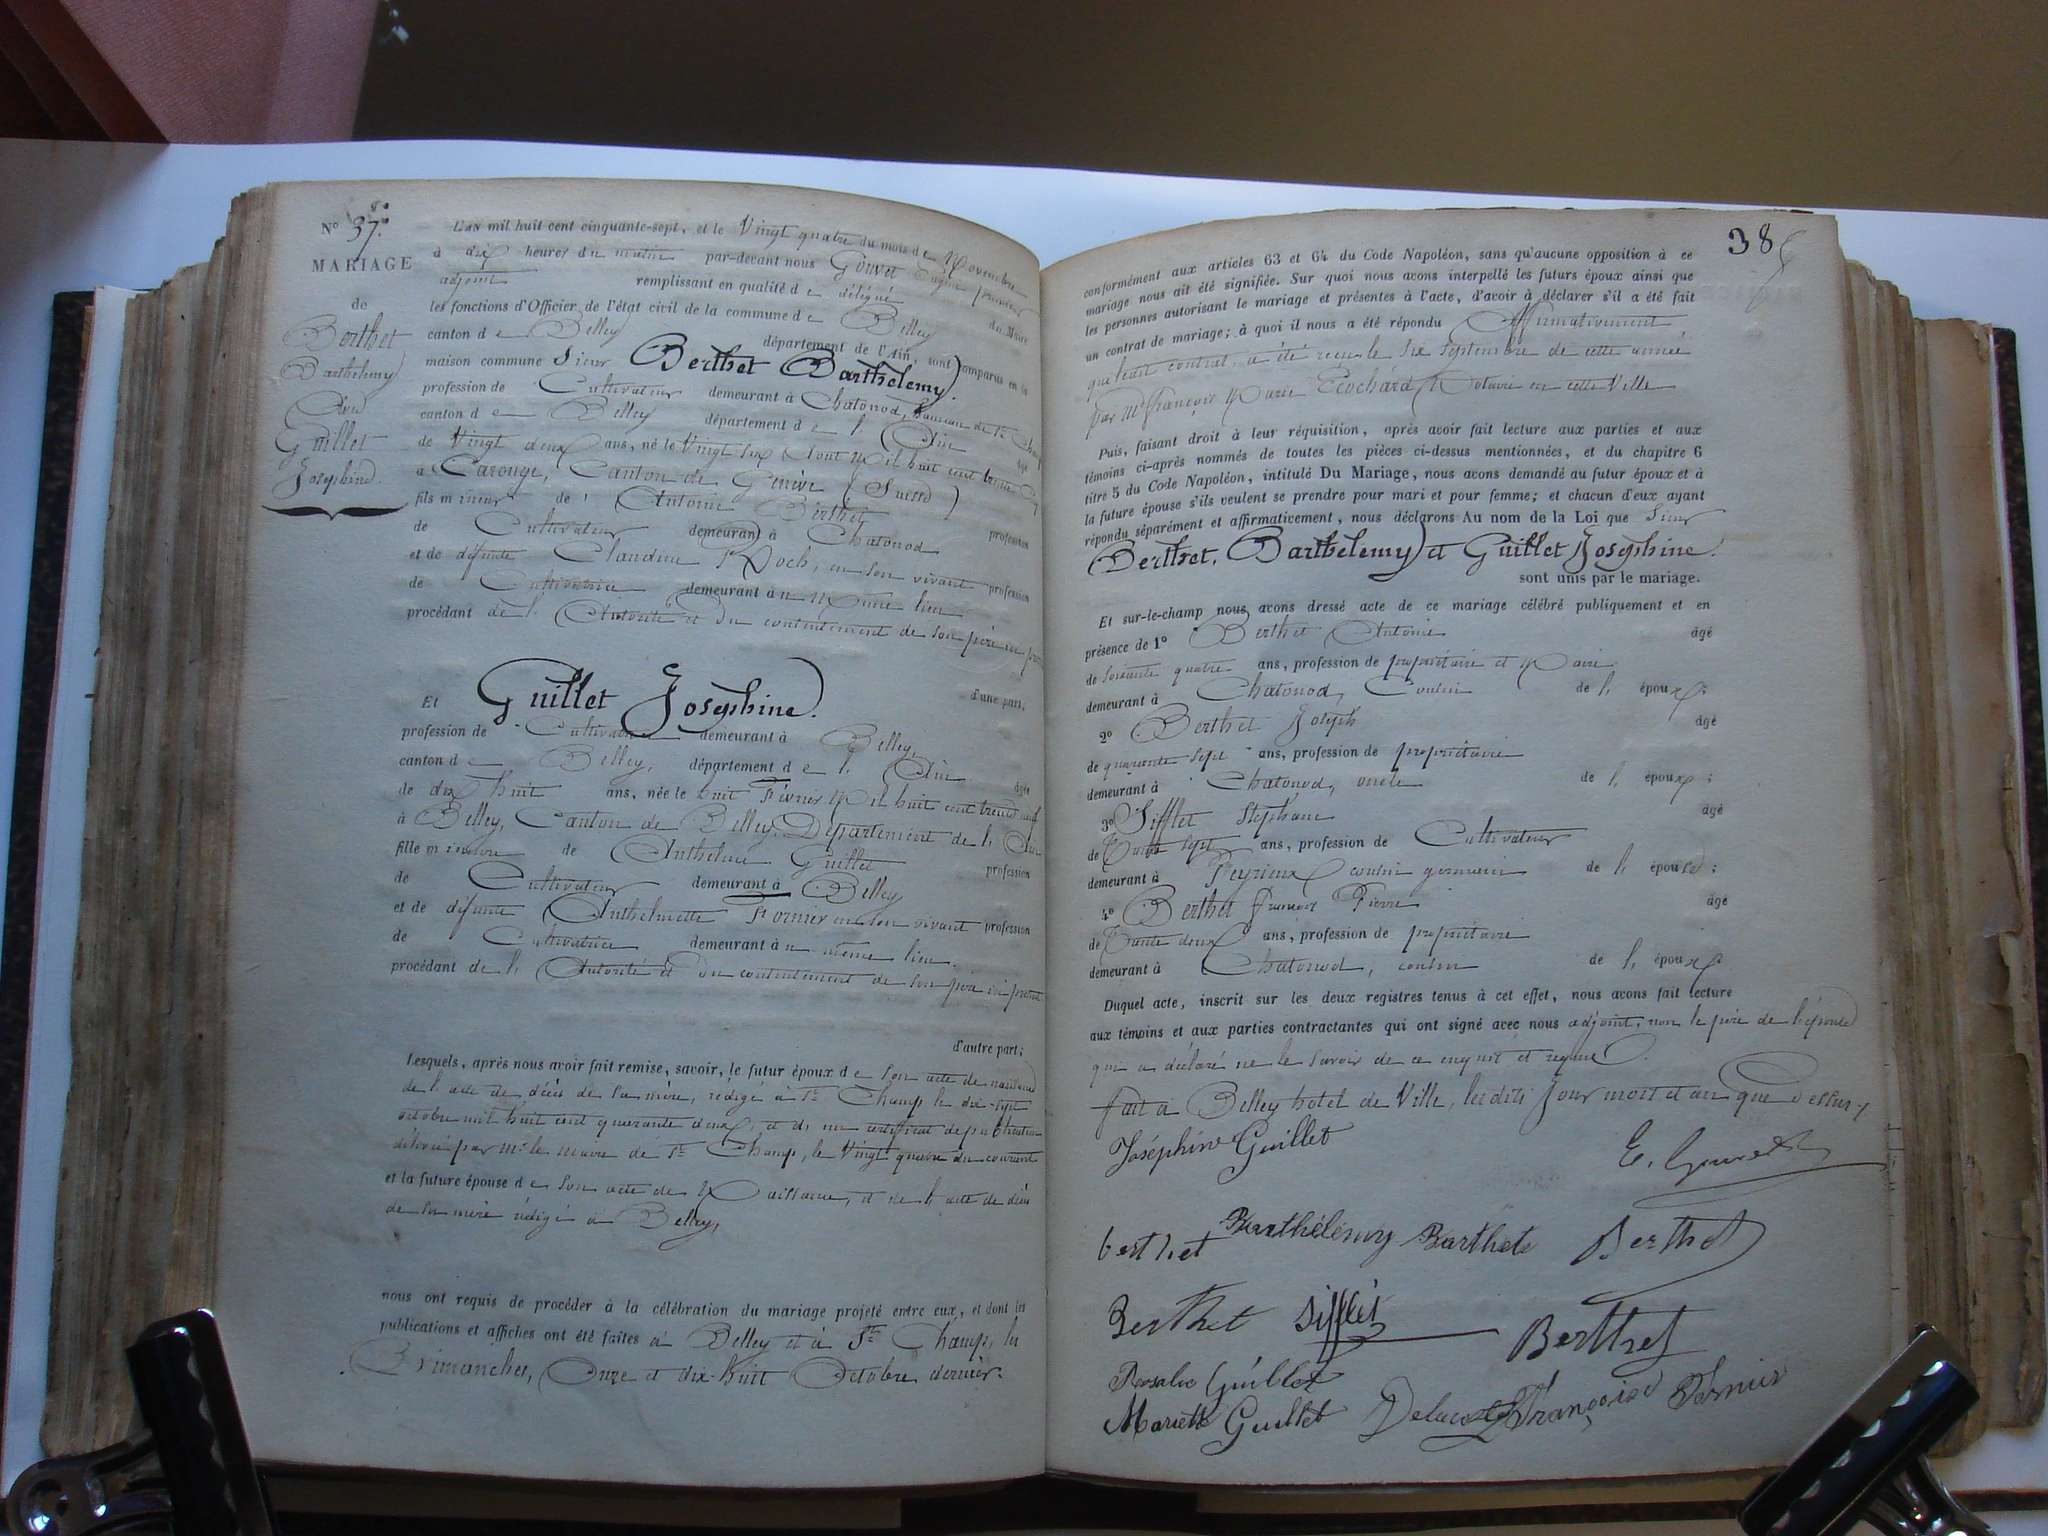 Nº 37.
MARIAGE
de
Berthet
Barthélemy
Avec
Guillet
Joséphine.
L'an mil huit cent cinquante-sept, et le Vingt quatre du mois de Novembre
à dix heures du matin par-devant nous Gouvet Eugène premier
adjoint remplissant en qualité de délégué du Maire
les fonctions d'Officier de l'état civil de la commune de Belley
canton de Belley département de l'Ain, sont comparus en la
maison commune Sieur Berthet Barthélemy
profession de Cultivateur demeurant à Chatonod, hameau de St Champ
canton de Belley département de l'Ain âgé
de Vingt deux ans, né le Vingt six Août Mil huit cent trente cinq
à Carouge, Canton de Genève (Suisse)
fils mineur de Antoine Berthet profession
de Cultivateur demeurant à Chatonod
et de défunte Claudine Roch, en son vivant profession
de Cultivatrice demeurant au Même lieu
procédant de l'Autorité et du contentement de son père ici présent
d'une part;
Et Guillet Joséphine.
profession de Cultivatrice demeurant à Belley,
canton de Belley, département de l'Ain âgée
de dix huit ans, née le huit Février Mil huit cent trente neuf
à Belley, Canton de Belley, Département de l'Ain
fille mineure de Anthelme Guillet profession
de Cultivateur demeurant à Belley
et de défunte Anthelmette Fornier en son vivant profession
de Cultivatrice demeurant au même lieu.
procédant de l'Autorité et du contentement de son père ici présent
d'autre part;
Lesquels, après nous avoir fait remise, savoir, le futur époux de son acte de naissance
de l'acte de décès de sa mère, rédigé à St Champ le dix-sept
octobre mil huit cent quarante deux, et d'un certificat de publication
délivré par Mr le maire de St Champ, le Vingt quatre du courant
et la future épouse de son acte de Naissance, et de l'acte de décès
de sa mère rédigé à Belley,
nous ont requis de procéder à la célébration du mariage projeté entre eux, et dont les
publications et affiches ont été faites à Belley et à St Champ, les
Dimanches, Onze et dix-huit Octobre dernier.
38
conformément aux articles 63 et 64 du Code Napoléon, sans qu'aucune opposition à ce
mariage nous ait été signifiée. Sur quoi nous avons interpellé les futurs époux ainsi que
les personnes autorisant le mariage et présentes à l'acte, d'avoir à déclarer s'il a été fait
un contrat de mariage; à quoi il nous a été répondu Affirmativement
que leur contrat a été reçu le Septembre de cette année
par Me François Marie Ecochard Notaire en cette Ville
Puis, faisant droit à leur réquisition, après avoir fait lecture aux parties et aux
témoins ci-après nommés de toutes les pièces ci-dessus mentionnées, et du chapitre 6
titre 5 du Code Napoléon, intitulé Du Mariage, nous avons demandé au futur époux et à
la future épouse s'ils veulent se prendre pour mari et pour femme; et chacun d'eux ayant
répondu séparément et affirmativement, nous déclarons Au nom de la Loi que Sieur
Berthet, Barthélemy et Guillet Joséphine.
sont unis par le mariage.
Et sur-le-champ nous avons dressé acte de ce mariage célébré publiquement et en
présence de 1º Berthet Antoine âgé
de soixante quatre ans, profession de propriétaire et Maire
demeurant à Chatonod, Cousin de l'époux;
2º Berthet Joseph âgé
de quarante sept ans, profession de propriétaire
demeurant à Chatonod, oncle de l'époux;
3º Sifflet Stéphane âgé
de sept ans, profession de Cultivateur
demeurant à Peyrieux cousin germain de l'épouse;
4º Berthet François Pierre âgé
de Trente deux ans, profession de propriétaire
demeurant à Chatonod, cousin de l'époux
Duquel acte, inscrit sur les deux registres tenus à cet effet, nous avons fait lecture
aux témoins et aux parties contractantes qui ont signé avec nous adjoint, non le père de l'épouse
qui a déclaré ne le savoir de ce enquis et requis.
fait à Belley hôtel de Ville, les dits Jour mois et an que Dessus
Joséphine Guillet
E. Gouvet
berthet Barthélémy Barthete Berthet
Berthet Sifflet Berthet
Rosalie Guillet
Mariette Guillet Françoise Fornier